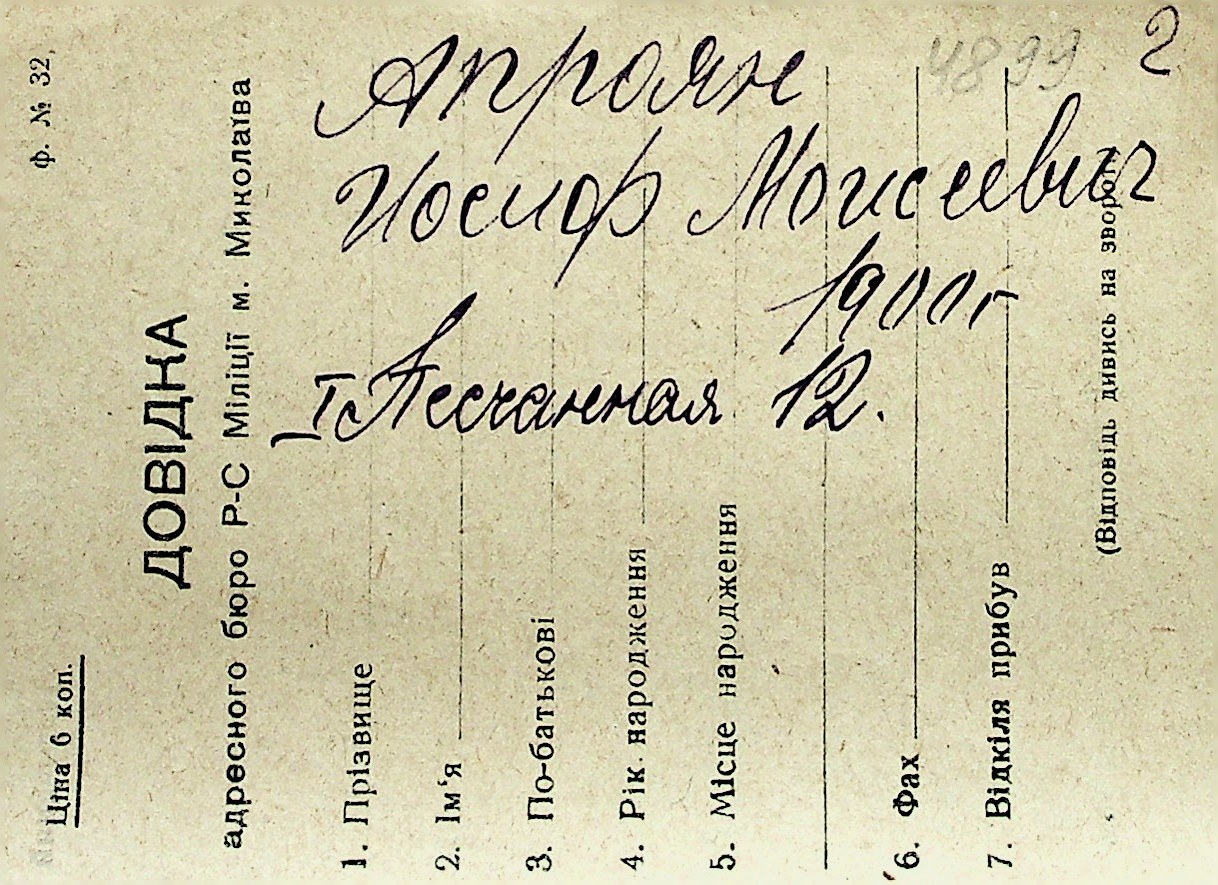 Ціна 6 коп.
ф. № 32,
ДОВІДКА
адресного бюро Р-С Міліції м. Миколаїва
1. Прізвище
2. Ім‘я
3. По-батькові
4. Рік народження
5. Місце народження
6. Фах
7. Відкіля прибув
(Відповідь дивись на звороті
4899
2
Апроян
Иосиф Моисеевич
1900г
I Песчанная 12.